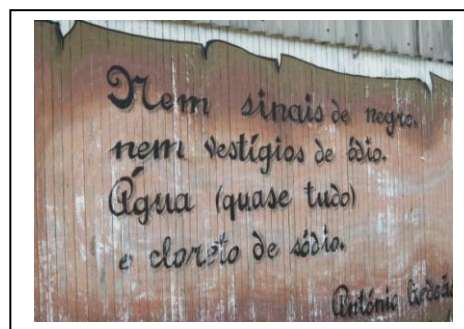 Nem sinais de negro.
nem vestígios de ódio.
Água (quase tudo)
e cloreto de sódio.
António Gedeão